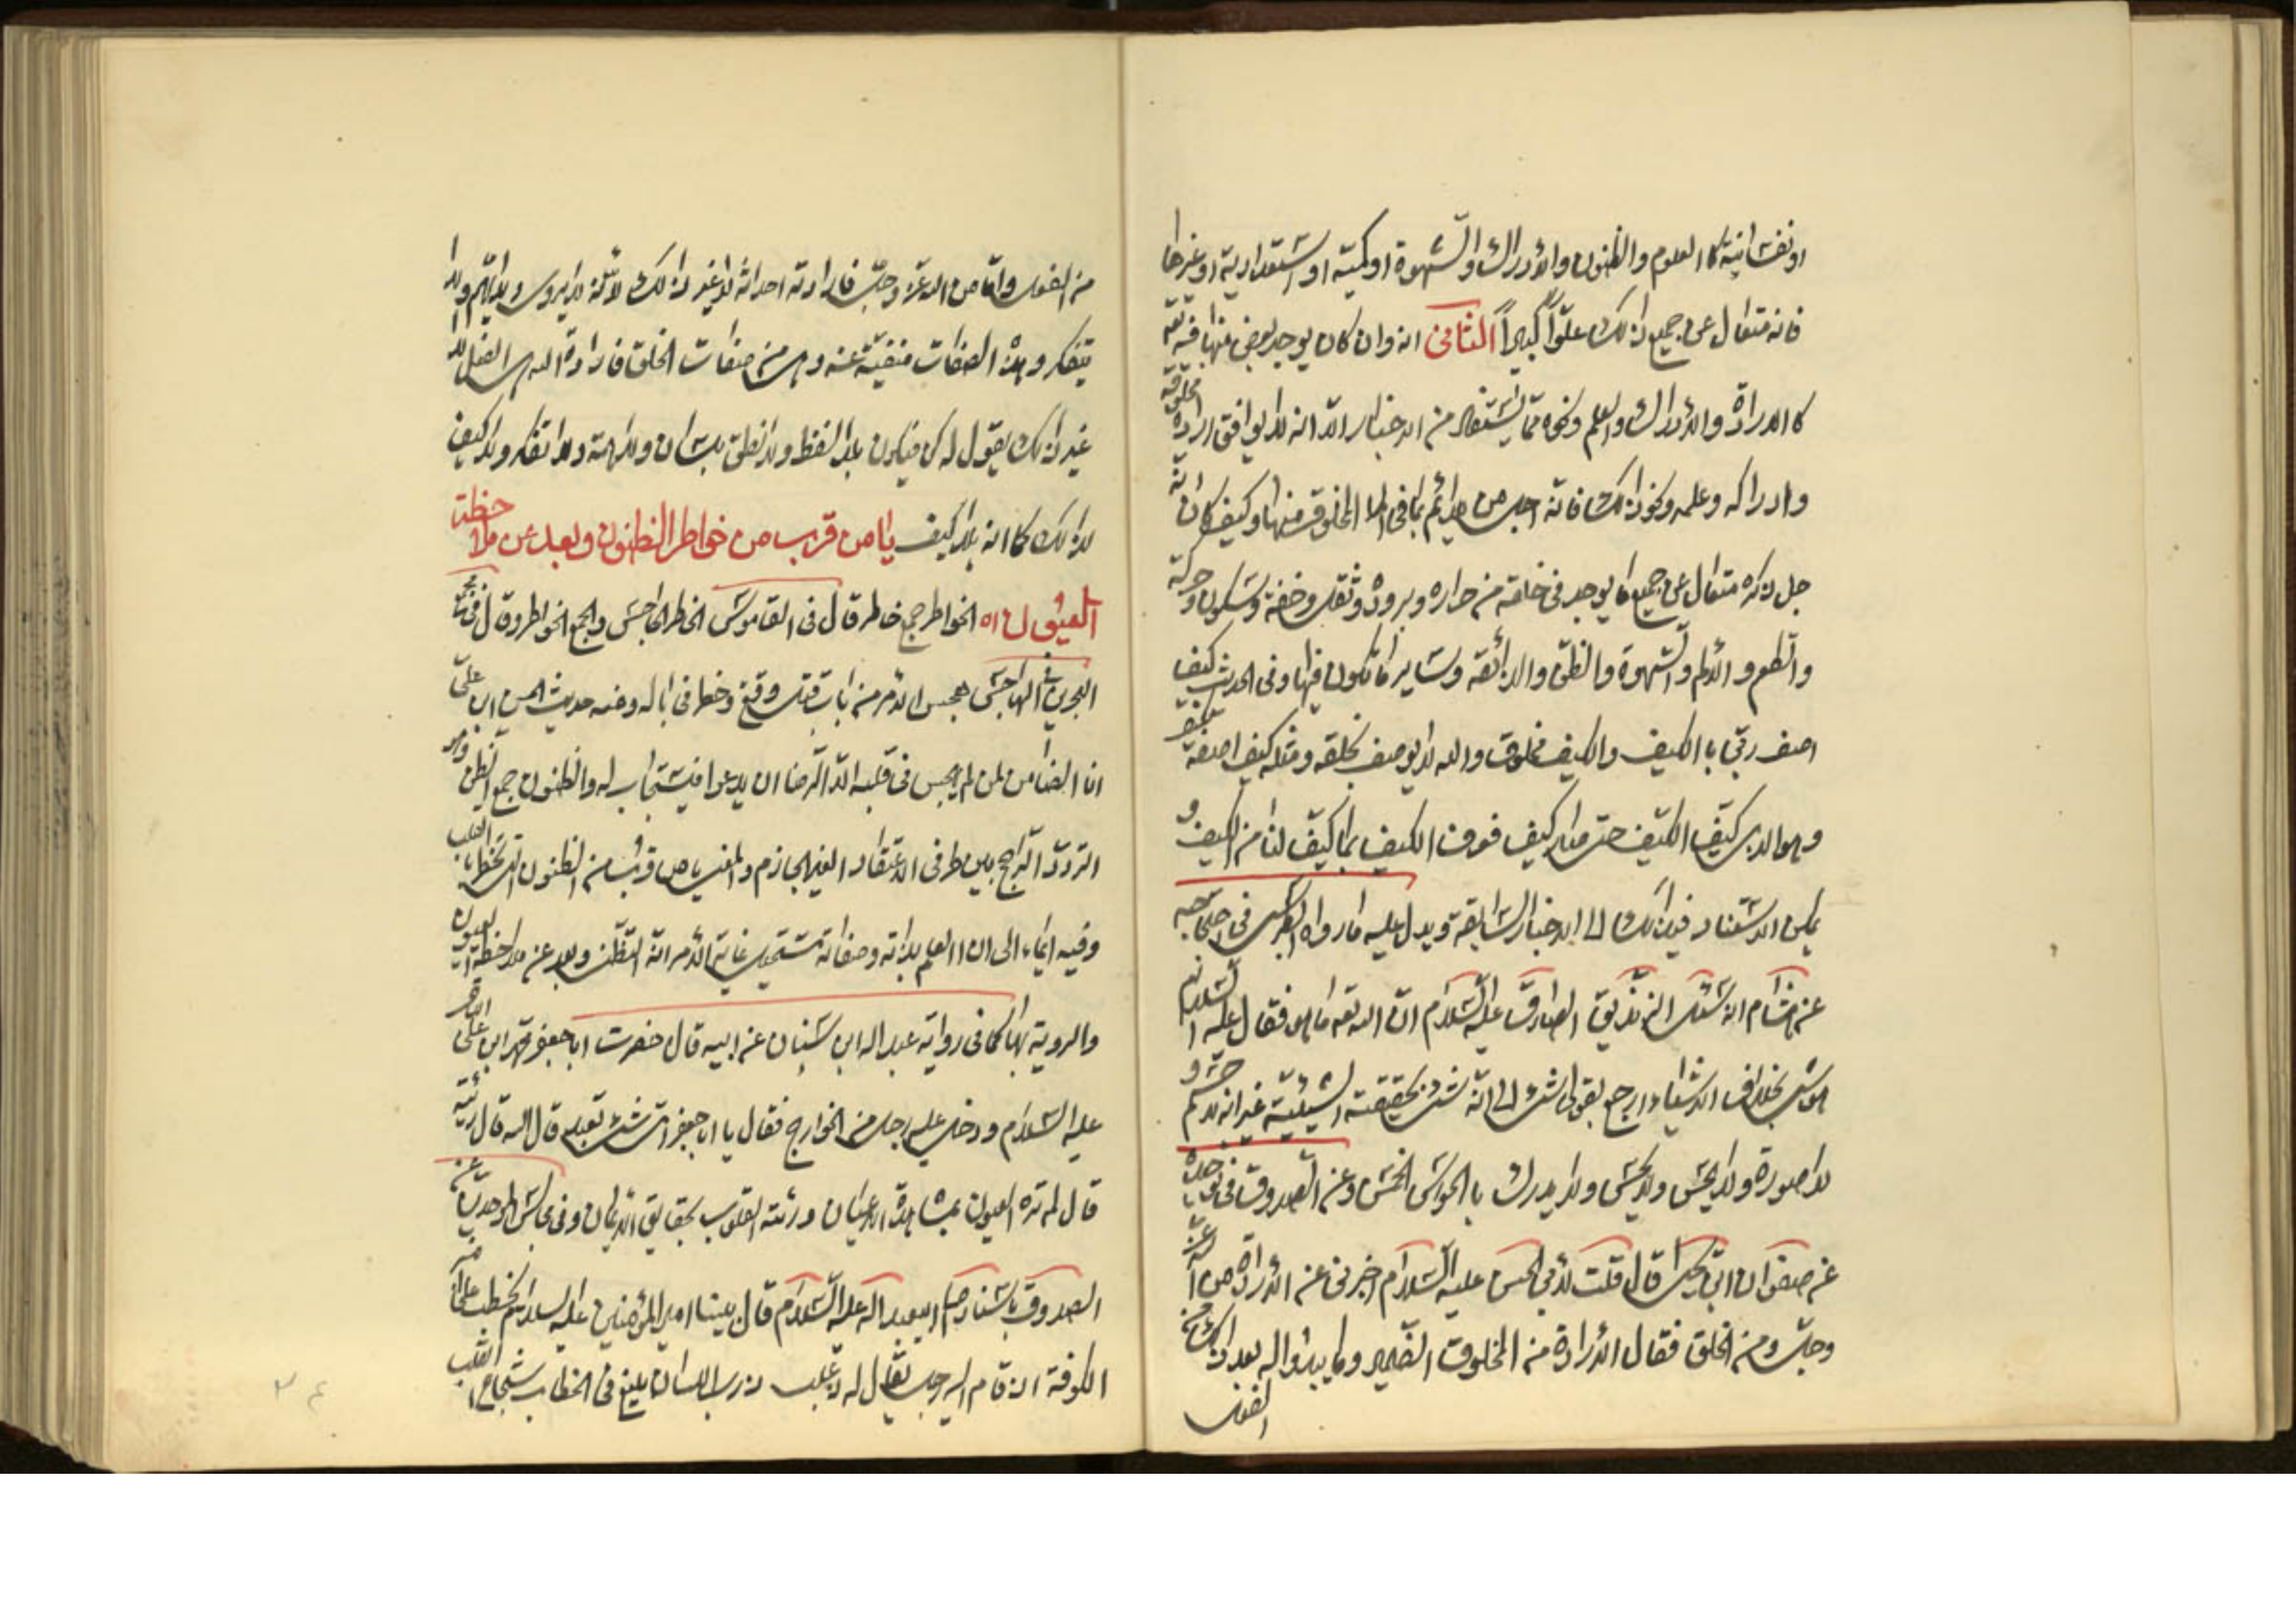 او نفسانية كالعلوم والظنون والادراك والشهوة او كمية او استعدادية او غيرها
فانه متعال عن جميع ذلك علوّاً كبيراً الثانى انه وان كان يوجد بعض منها فيه تعه
كالارادة والادراك والعلم ونحوه مما يستفاد من الاخبار الا انه لا يوافق ارادة مخلوقه
وادراكه وعلمه ونحو ذلك فانه اجل من ان يلائم بما فى المخلوق منها وكيف كان فانه
جل ذكره متعال عن جميع ما يوجد فى خلقه من حراره وبرودة وثقل وخفة وسكون وحركة
والطعم والالم والشهوة والنطق والذائقه وساير ما تكون فيها وفى الحديث كيف
اصف ربى بالكيف والكيف مخلوق والله لا يوصف بخلقه ومثله كيف اصفه بكيف
وهو الذى كيّف الكيف حتى صار كيف فعرفت الكيف بما كيّف لنا من الكيف و
يمكن الاستناد فى ذلك الى الاخبار السابقة ويدل عليه ما رواه الطبرسى فى احتجاجه
عن هشام انه سئل الزنديق الصادق عليه السّلام انّ الله تعه ما هو فقال عليه السّلام
هو شىء بخلاف الاشياء ارجع بقولى شىء الى انّه شىء بحقيقته الشيئية غير انه لا جسم و
لا صورة ولا يحسّ ولا يجسّ ولا يدرك بالحواس الخمس وعن الصدوق فى توحيده
عن صفوان ابن يحيى قال قلت لابى الحسن عليه السّلام اخبرنى عن الارادة من الله عزّ
وجلّ ومن الخلق فقال الارادة من المخلوق الضمير وما يبدو له بعد ذلك من
الفعل
من الفعل وامّا من الله عزّ وجلّ فارادته احداثه لا غير ذلك لانّه لا يروى ولا يهم ولا
يتفكر وهذه الصفات منفيّة عنه وهى من صفات الخلق فارادة الله هى الفعل لا
غير ذلك يقول له كن فيكون بلا لفظ ولا نطق بلسان ولا همة ولا تفكر ولا كيف
لذلك كما انه بلا كيف يا من قرب من خواطر الظنون وبعد عن ملاحظة
العيون اه الخواطر جمع خاطر قال فى القاموس الخاطر الهاجس والجمع الخواطر وقال فى مجمع
البحرين الهاجس هجس الامر من باب قتل وقع وخطر فى باله ومنه حديث الحسن ابن على
انا الضامن لمن لم يهجس فى قلبه الا الرضا ان يدعو فيستجاب له والظنون جمع الظن وهو
التردد الراجح بين طرفى الاعتقاد الغير الجازم والمعنى يا من قرب من الظنون التى تخطر بالقلب
وفيه ايماء الى ان العلم بذاته وصفاته مستحيل غاية الامر انه التظنن وبعد عن ملاحظة العيون
والروية بها كما فى رواية عبد الله ابن سنان عن ابيه قال حضرت ابا جعفر محمد ابن على الباقر
عليه السّلام ودخل عليه رجل من الخوارج فقال يا ابا جعفر اى شىء تعبد قال الله قال رئيته
قال لم تره العيون بمشاهدة الاعيان ورئته القلوب بحقايق الايمان وفى مجالس التوحيد عن
الصدوق باسناده عن ابيعبد الله عليه السّلام قال بينا امير المؤمنين عليه السلام يخطب على منبر
الكوفة اذ قام اليه رجل يقال له ذعلب ذرب اللسان بليغ فى الخطاب شجاع القلب